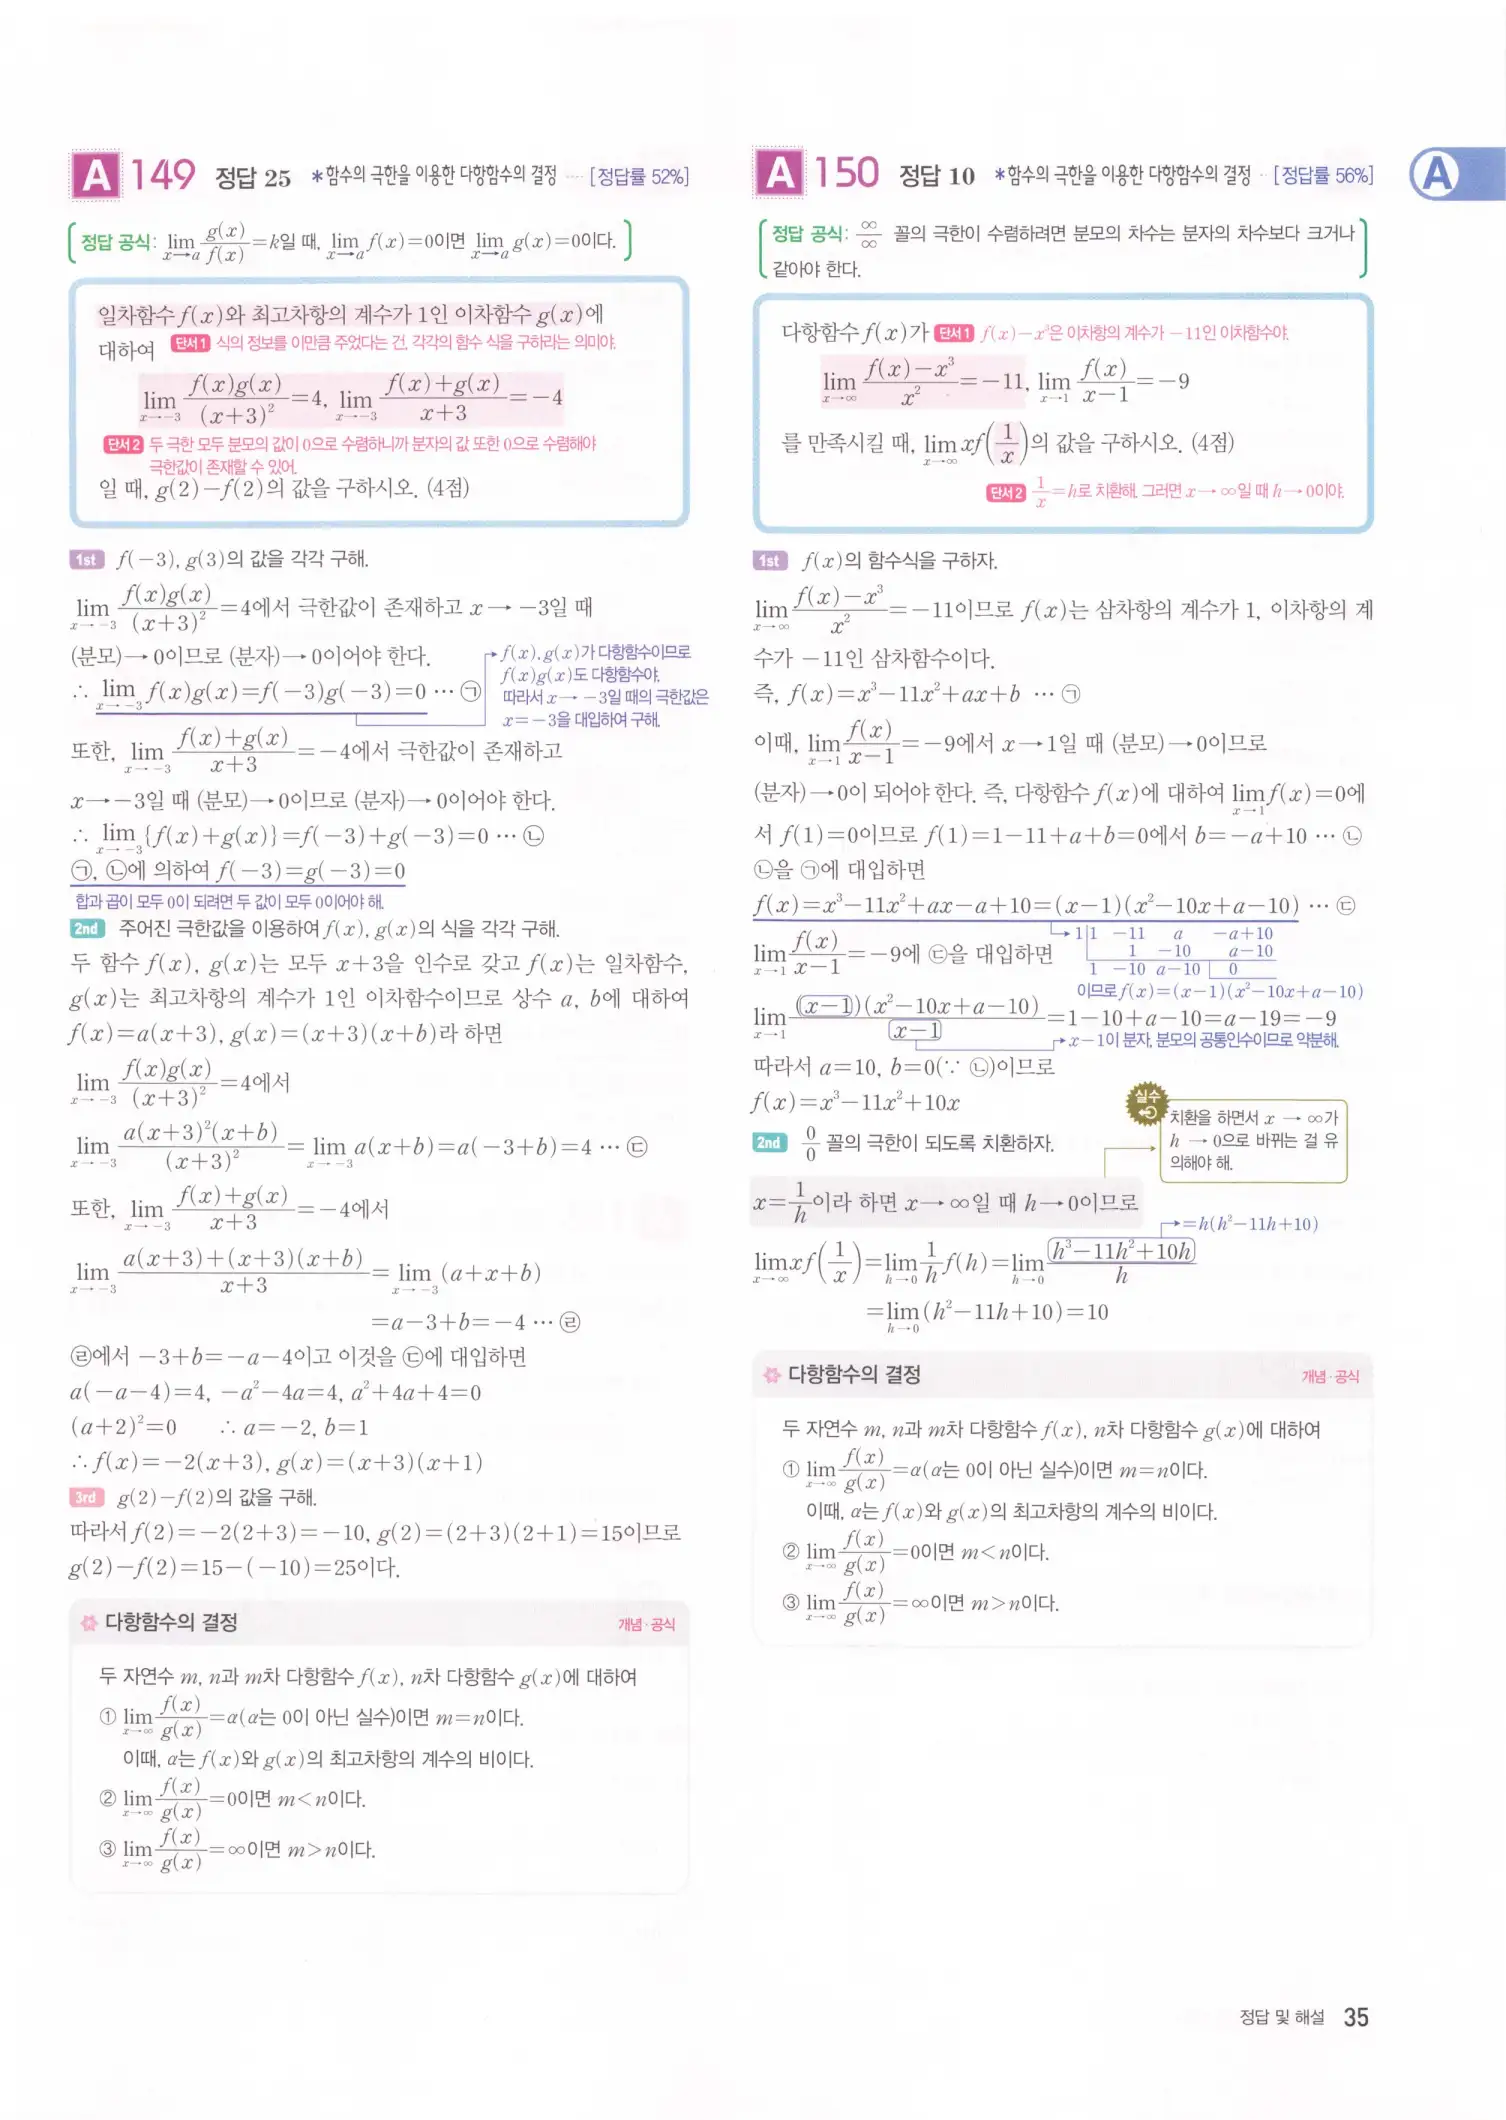 A 149 정답 25 *함수의 극한을 이용한 다항함수의 결정 ···· [정답률 52%]
정답 공식: lim_{x→a} g(x)/f(x)=k일 때, lim_{x→a} f(x)=0이면 lim_{x→a} g(x)=0이다.
일차함수 f(x)와 최고차항의 계수가 1인 이차함수 g(x)에
대하여 단서1 식의 정보를 이만큼 주었다는 건, 각각의 함수 식을 구하라는 의미야.
lim_{x→-3} f(x)g(x)/(x+3)²=4, lim_{x→-3} {f(x)+g(x)}/(x+3)=-4
단서2 두 극한 모두 분모의 값이 0으로 수렴하니까 분자의 값 또한 0으로 수렴해야
극한값이 존재할 수 있어.
일 때, g(2)-f(2)의 값을 구하시오. (4점)
1st f(-3), g(3)의 값을 각각 구해.
lim_{x→-3} f(x)g(x)/(x+3)²=4에서 극한값이 존재하고 x→-3일 때
(분모)→0이므로 (분자)→0이어야 한다.
∴ lim_{x→-3} f(x)g(x)=f(-3)g(-3)=0 ··· ㉠
f(x), g(x)가 다항함수이므로
f(x)g(x)도 다항함수야.
따라서 x→-3일 때의 극한값은
x=-3을 대입하여 구해.
또한, lim_{x→-3} {f(x)+g(x)}/(x+3)=-4에서 극한값이 존재하고
x→-3일 때 (분모)→0이므로 (분자)→0이어야 한다.
∴ lim_{x→-3} {f(x)+g(x)}=f(-3)+g(-3)=0 ··· ㉡
㉠, ㉡에 의하여 f(-3)=g(-3)=0
합과 곱이 모두 0이 되려면 두 값이 모두 0이어야 해.
2nd 주어진 극한값을 이용하여 f(x), g(x)의 식을 각각 구해.
두 함수 f(x), g(x)는 모두 x+3을 인수로 갖고 f(x)는 일차함수,
g(x)는 최고차항의 계수가 1인 이차함수이므로 상수 a, b에 대하여
f(x)=a(x+3), g(x)=(x+3)(x+b)라 하면
lim_{x→-3} f(x)g(x)/(x+3)²=4에서
lim_{x→-3} a(x+3)²(x+b)/(x+3)²=lim_{x→-3} a(x+b)=a(-3+b)=4 ··· ㉢
또한, lim_{x→-3} {f(x)+g(x)}/(x+3)=-4에서
lim_{x→-3} {a(x+3)+(x+3)(x+b)}/(x+3)=lim_{x→-3} (a+x+b)
=a-3+b=-4 ··· ㉣
㉣에서 -3+b=-a-4이고 이것을 ㉢에 대입하면
a(-a-4)=4, -a²-4a=4, a²+4a+4=0
(a+2)²=0 ∴ a=-2, b=1
∴ f(x)=-2(x+3), g(x)=(x+3)(x+1)
3rd g(2)-f(2)의 값을 구해.
따라서 f(2)=-2(2+3)=-10, g(2)=(2+3)(2+1)=15이므로
g(2)-f(2)=15-(-10)=25이다.
다항함수의 결정 개념·공식
두 자연수 m, n과 m차 다항함수 f(x), n차 다항함수 g(x)에 대하여
① lim_{x→∞} f(x)/g(x)=α(α는 0이 아닌 실수)이면 m=n이다.
이때, α는 f(x)와 g(x)의 최고차항의 계수의 비이다.
② lim_{x→∞} f(x)/g(x)=0이면 m<n이다.
③ lim_{x→∞} f(x)/g(x)=∞이면 m>n이다.
A 150 정답 10 *함수의 극한을 이용한 다항함수의 결정 ·· [정답률 56%]
정답 공식: ∞/∞ 꼴의 극한이 수렴하려면 분모의 차수는 분자의 차수보다 크거나
같아야 한다.
다항함수 f(x)가 단서1 f(x)-x³은 이차항의 계수가 -11인 이차함수야.
lim_{x→∞} {f(x)-x³}/x²=-11, lim_{x→1} f(x)/(x-1)=-9
를 만족시킬 때, lim_{x→∞} xf(1/x)의 값을 구하시오. (4점)
단서2 1/x=h로 치환해. 그러면 x→∞일 때 h→0이야.
1st f(x)의 함수식을 구하자.
lim_{x→∞} {f(x)-x³}/x²=-11이므로 f(x)는 삼차항의 계수가 1, 이차항의 계
수가 -11인 삼차함수이다.
즉, f(x)=x³-11x²+ax+b ··· ㉠
이때, lim_{x→1} f(x)/(x-1)=-9에서 x→1일 때 (분모)→0이므로
(분자)→0이 되어야 한다. 즉, 다항함수 f(x)에 대하여 lim_{x→1} f(x)=0에
서 f(1)=0이므로 f(1)=1-11+a+b=0에서 b=-a+10 ··· ㉡
㉡을 ㉠에 대입하면
f(x)=x³-11x²+ax-a+10=(x-1)(x²-10x+a-10) ··· ㉢
1 | 1 -11 a -a+10
1 -10 a-10
1 -10 a-10 | 0
이므로 f(x)=(x-1)(x²-10x+a-10)
lim_{x→1} f(x)/(x-1)=-9에 ㉢을 대입하면
lim_{x→1} (x-1)(x²-10x+a-10)/(x-1)=1-10+a-10=a-19=-9
x-1이 분자, 분모의 공통인수이므로 약분해.
따라서 a=10, b=0(∵ ㉡)이므로
f(x)=x³-11x²+10x
실수
치환을 하면서 x → ∞가
h → 0으로 바뀌는 걸 유
의해야 해.
2nd 0/0 꼴의 극한이 되도록 치환하자.
x=1/h이라 하면 x→∞일 때 h→0이므로
=h(h²-11h+10)
lim_{x→∞} xf(1/x)=lim_{h→0} (1/h)f(h)=lim_{h→0} (h³-11h²+10h)/h
=lim_{h→0} (h²-11h+10)=10
다항함수의 결정 개념·공식
두 자연수 m, n과 m차 다항함수 f(x), n차 다항함수 g(x)에 대하여
① lim_{x→∞} f(x)/g(x)=α(α는 0이 아닌 실수)이면 m=n이다.
이때, α는 f(x)와 g(x)의 최고차항의 계수의 비이다.
② lim_{x→∞} f(x)/g(x)=0이면 m<n이다.
③ lim_{x→∞} f(x)/g(x)=∞이면 m>n이다.
A
정답 및 해설 35